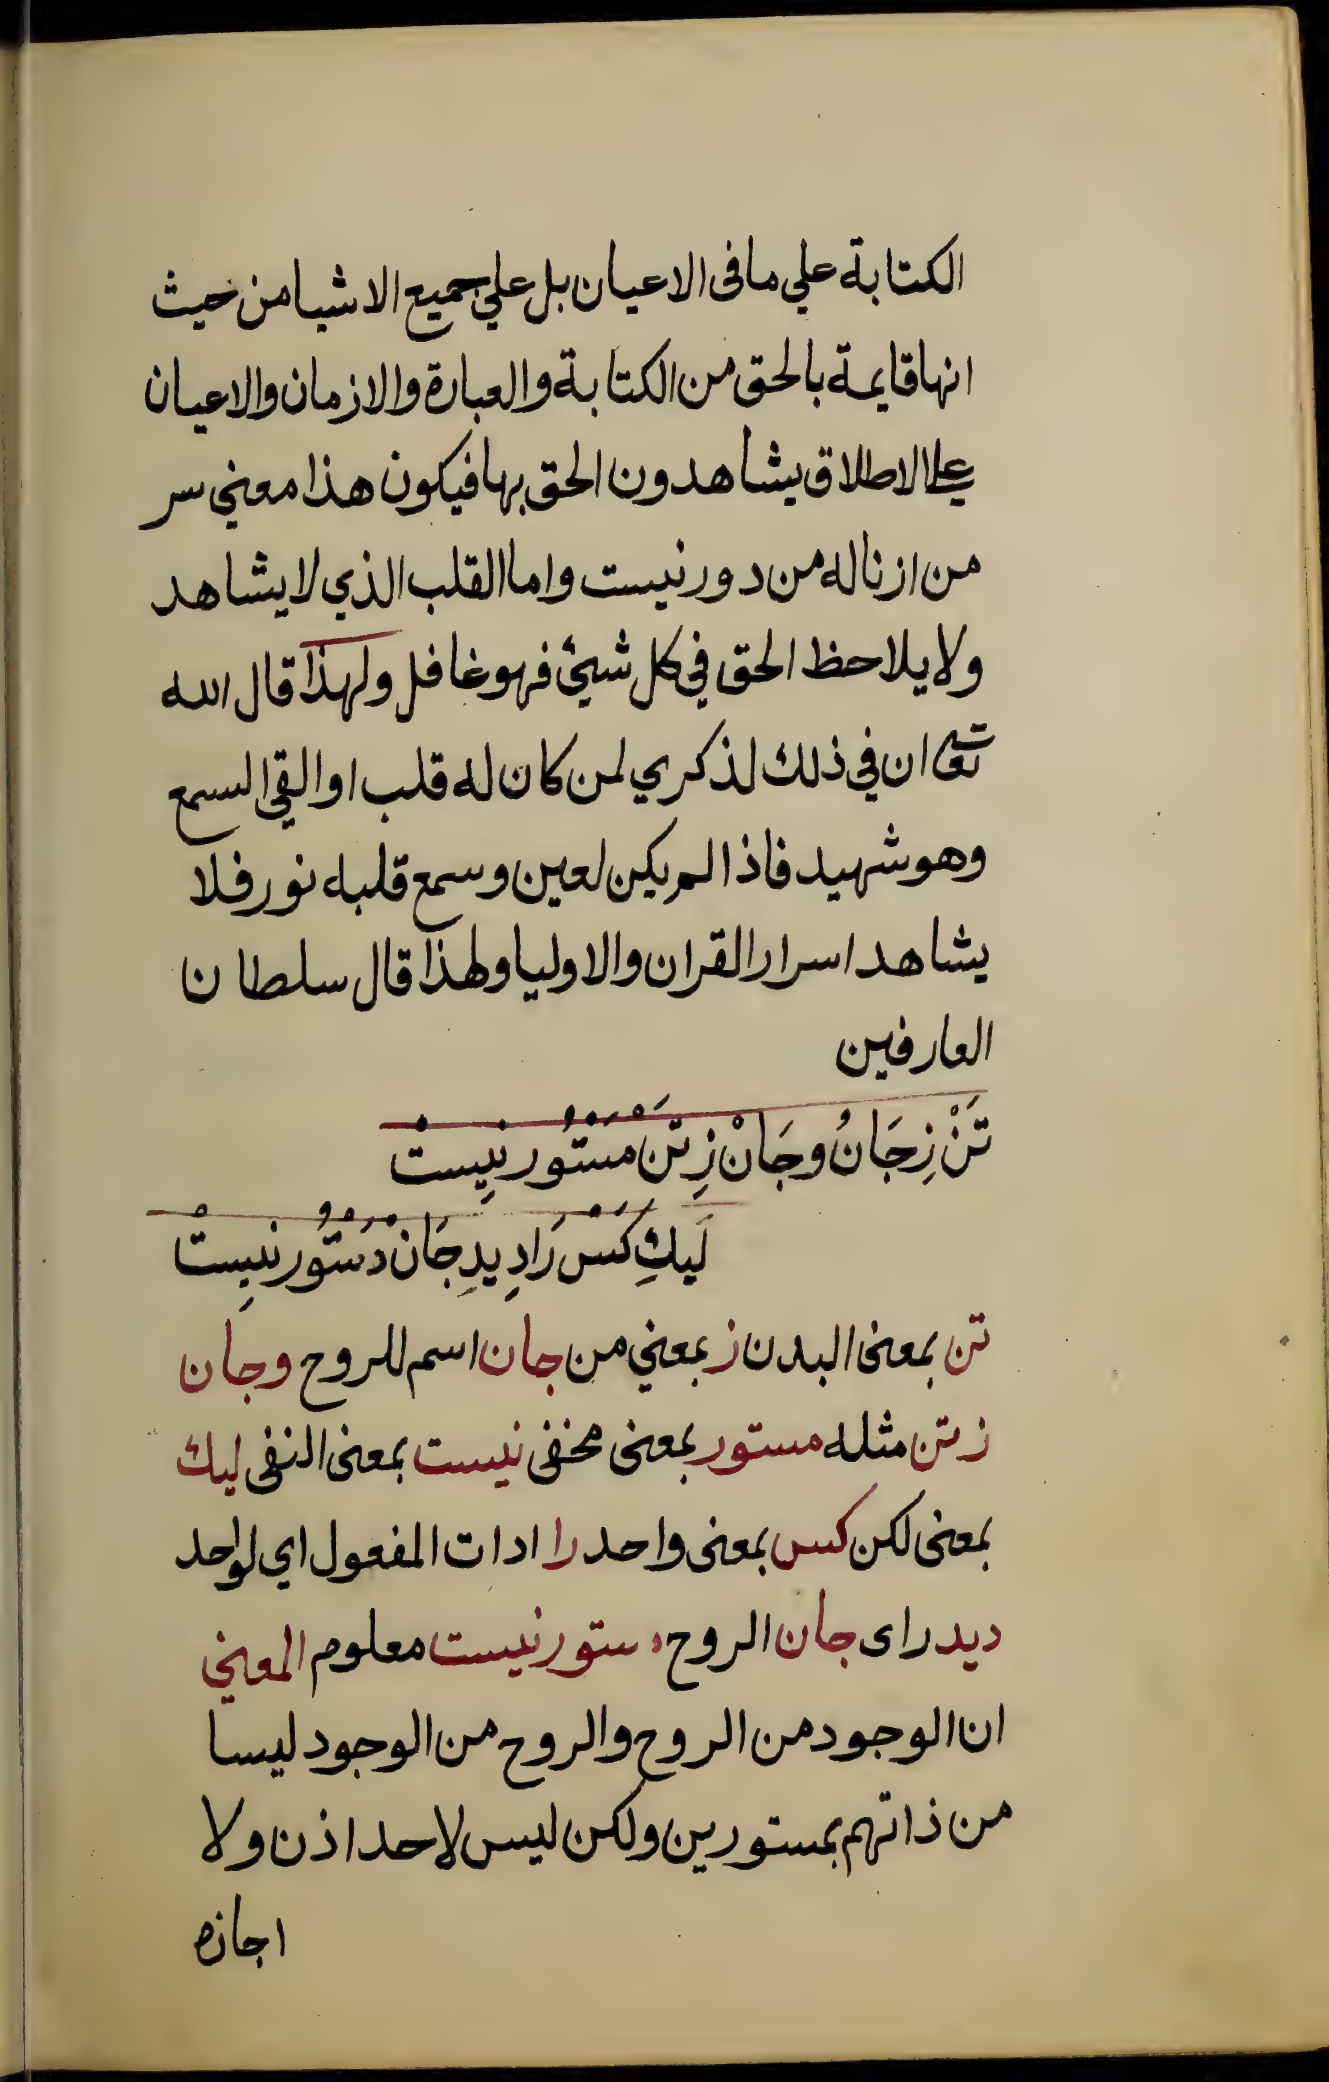 الكتابة علي ما في الاعيان بل علي جميع الاشيا من حيث
انها قايمة بالحق من الكتابة والعبارة والازمان والاعيان
علي الاطلاق يشاهدون الحق بها فيكون هذا معني سر
من از ناله من دور نيست واما القلب الذي لا يشاهد
ولا يلاحظ الحق في كل شيئ فهو غافل ولهذا قال الله
تعالى ان في ذلك لذكري لمن كان له قلب او القي السمع
وهو شهيد فاذا لم يكن لعين وسمع قلبه نور فلا
يشاهد اسرار القران والاوليا ولهذا قال سلطان
العارفين
تَنْ زِجَانُ وجَانْ زِتَنْ مَسْتُور نِيستْ
لَيكِ كَسْ رَا دِيدِ جَانْ دَسْتُور نِيستْ
تن بمعنى البدن ز بمعني من جان اسم للروح وجان
ز تن مثله مستور بمعنى مخفى نيست بمعنى النفى ليك
بمعنى لكن كس بمعنى واحد را ادات المفعول اي لواحد
ديد راى جان الروح دستور نيست معلوم المعني
ان الوجود من الروح والروح من الوجود ليسا
من ذاتهم بمستورين ولكن ليس لاحد اذن ولا
اجازه